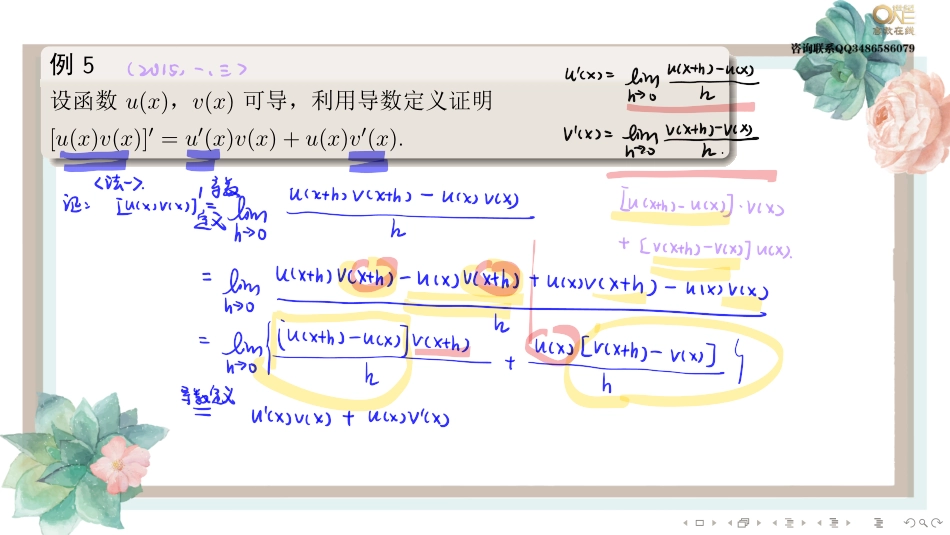 ONE
高数在线
咨询联系QQ3486586079
例 5 (2015, 一、三)
设函数 u(x)，v(x) 可导，利用导数定义证明
[u(x)v(x)]′ = u′(x)v(x) + u(x)v′(x).
u'(x) = lim h→0 u(x+h)-u(x) / h
v'(x) = lim h→0 v(x+h)-v(x) / h.
<法一>.
证: [u(x)v(x)]' 导数定义= lim h→0 u(x+h)v(x+h) - u(x)v(x) / h
[u(x+h)-u(x)]·v(x)
+ [v(x+h)-v(x)]u(x).
= lim h→0 u(x+h)v(x+h) - u(x)v(x+h) + u(x)v(x+h) - u(x)v(x) / h
= lim h→0 { [u(x+h)-u(x)]v(x+h) / h + u(x)[v(x+h)-v(x)] / h }
导数定义= u'(x)v(x) + u(x)v'(x)